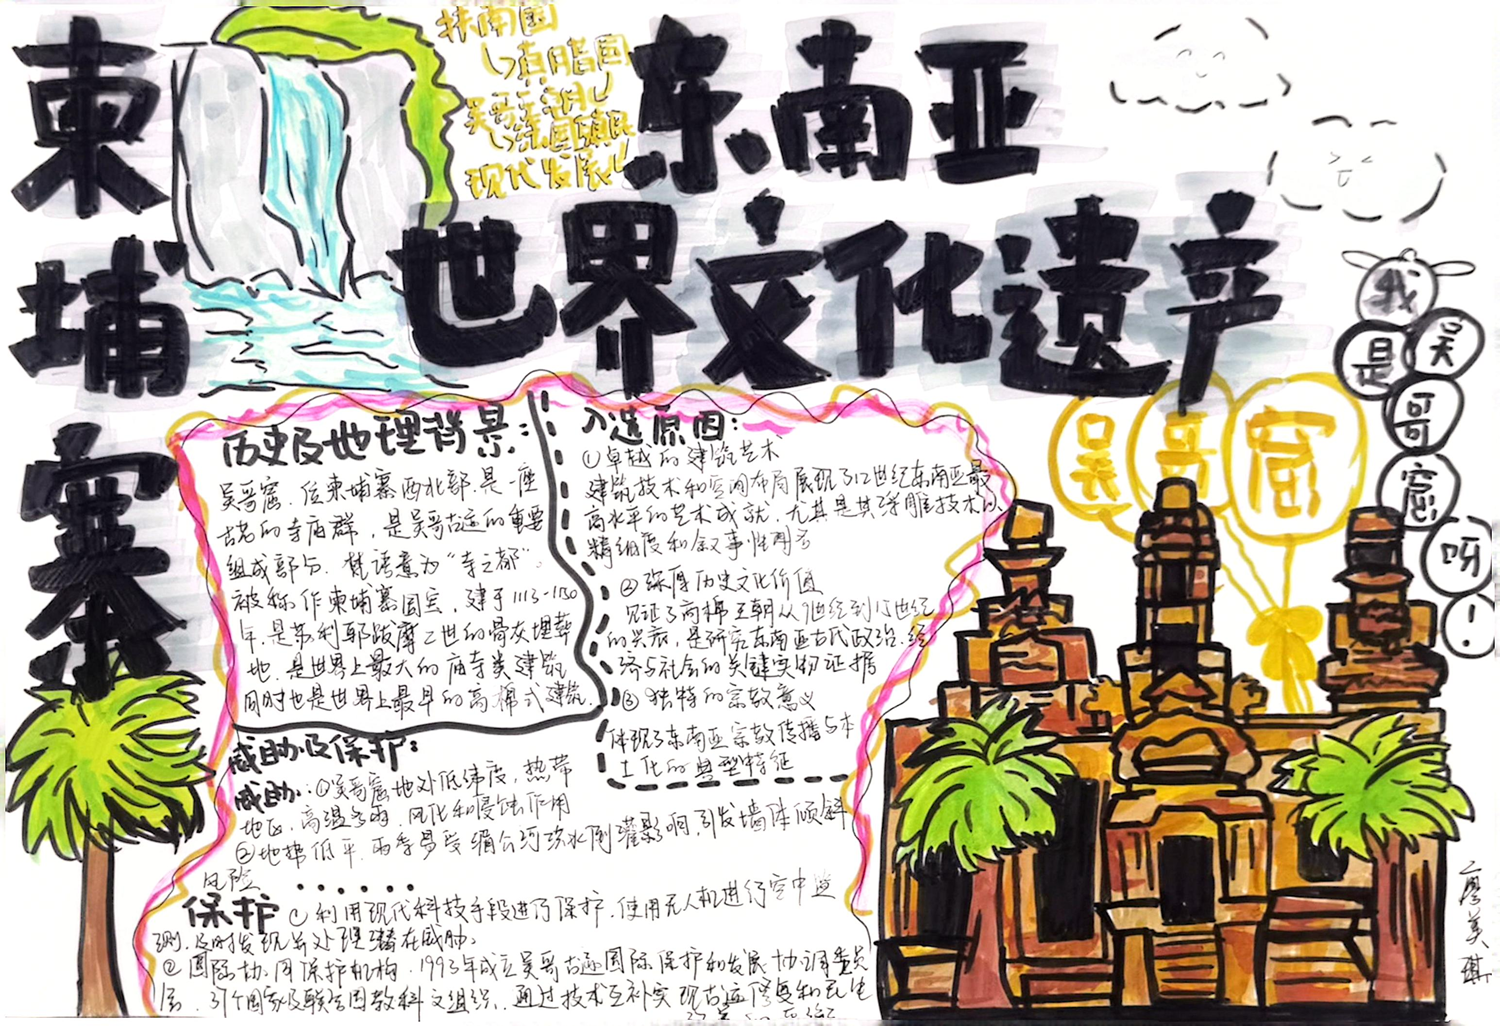 柬埔寨
东南亚
世界文化遗产
扶南国
真腊国
吴哥王朝
法国殖民
现代发展
吴哥窟
我是吴哥窟呀!
历史及地理背景:
吴哥窟,位柬埔寨西北部,是一座
古老的寺庙群,是吴哥古迹的重要
组成部分,梵语意为“寺之都”。
被称作柬埔寨国宝,建于1113-1150
年,是苏利耶跋摩二世的骨灰埋葬
地,是世界上最大的庙寺类建筑
同时也是世界上最早的高棉式建筑.
入选原因:
①卓越的建筑艺术
建筑技术和空间布局展现了12世纪东南亚最
高水平的艺术成就,尤其是其浮雕技术以
精细度和叙事性闻名
②深厚历史文化价值
见证了高棉王朝从9世纪到15世纪
的兴衰,是研究东南亚古代政治、经
济与社会的关键实物证据
③独特的宗教意义
体现了东南亚宗教传播与本
土化的典型特征
威胁及保护:
威胁:①吴哥窟地处低纬度,热带
地区,高温多雨,风化和侵蚀作用
②地势低平,雨季易受湄公河洪水倒灌影响,引发墙体倾斜
风险 ······
保护 ①利用现代科技手段进行保护,使用无人机进行空中监
测,及时发现并处理潜在威胁。
②国际协同保护机构,1993年成立吴哥古迹国际保护和发展协调委员
会,引个国家及联合国教科文组织,通过技术互补实现古迹修复和民生
廖美琪